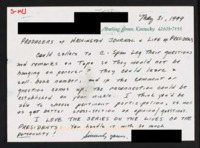 Bowling Green, Kentucky 42103-7155
May 31, 1999
Producers of Washington Journal & Life of Presidents
Could callers to C-Span Log their questions
and remarks on tape so they would not be
hanging on forever? They could leave a
call back number, and if the comment or
question comes up, the connection could be
established on your nickel. I think you'd be
able to screen pertinent participation, as well
as get better cross-section on opinions/questions.
I love the series on the lives of the
Presidents. You handle it with so much
Sincerely yours,